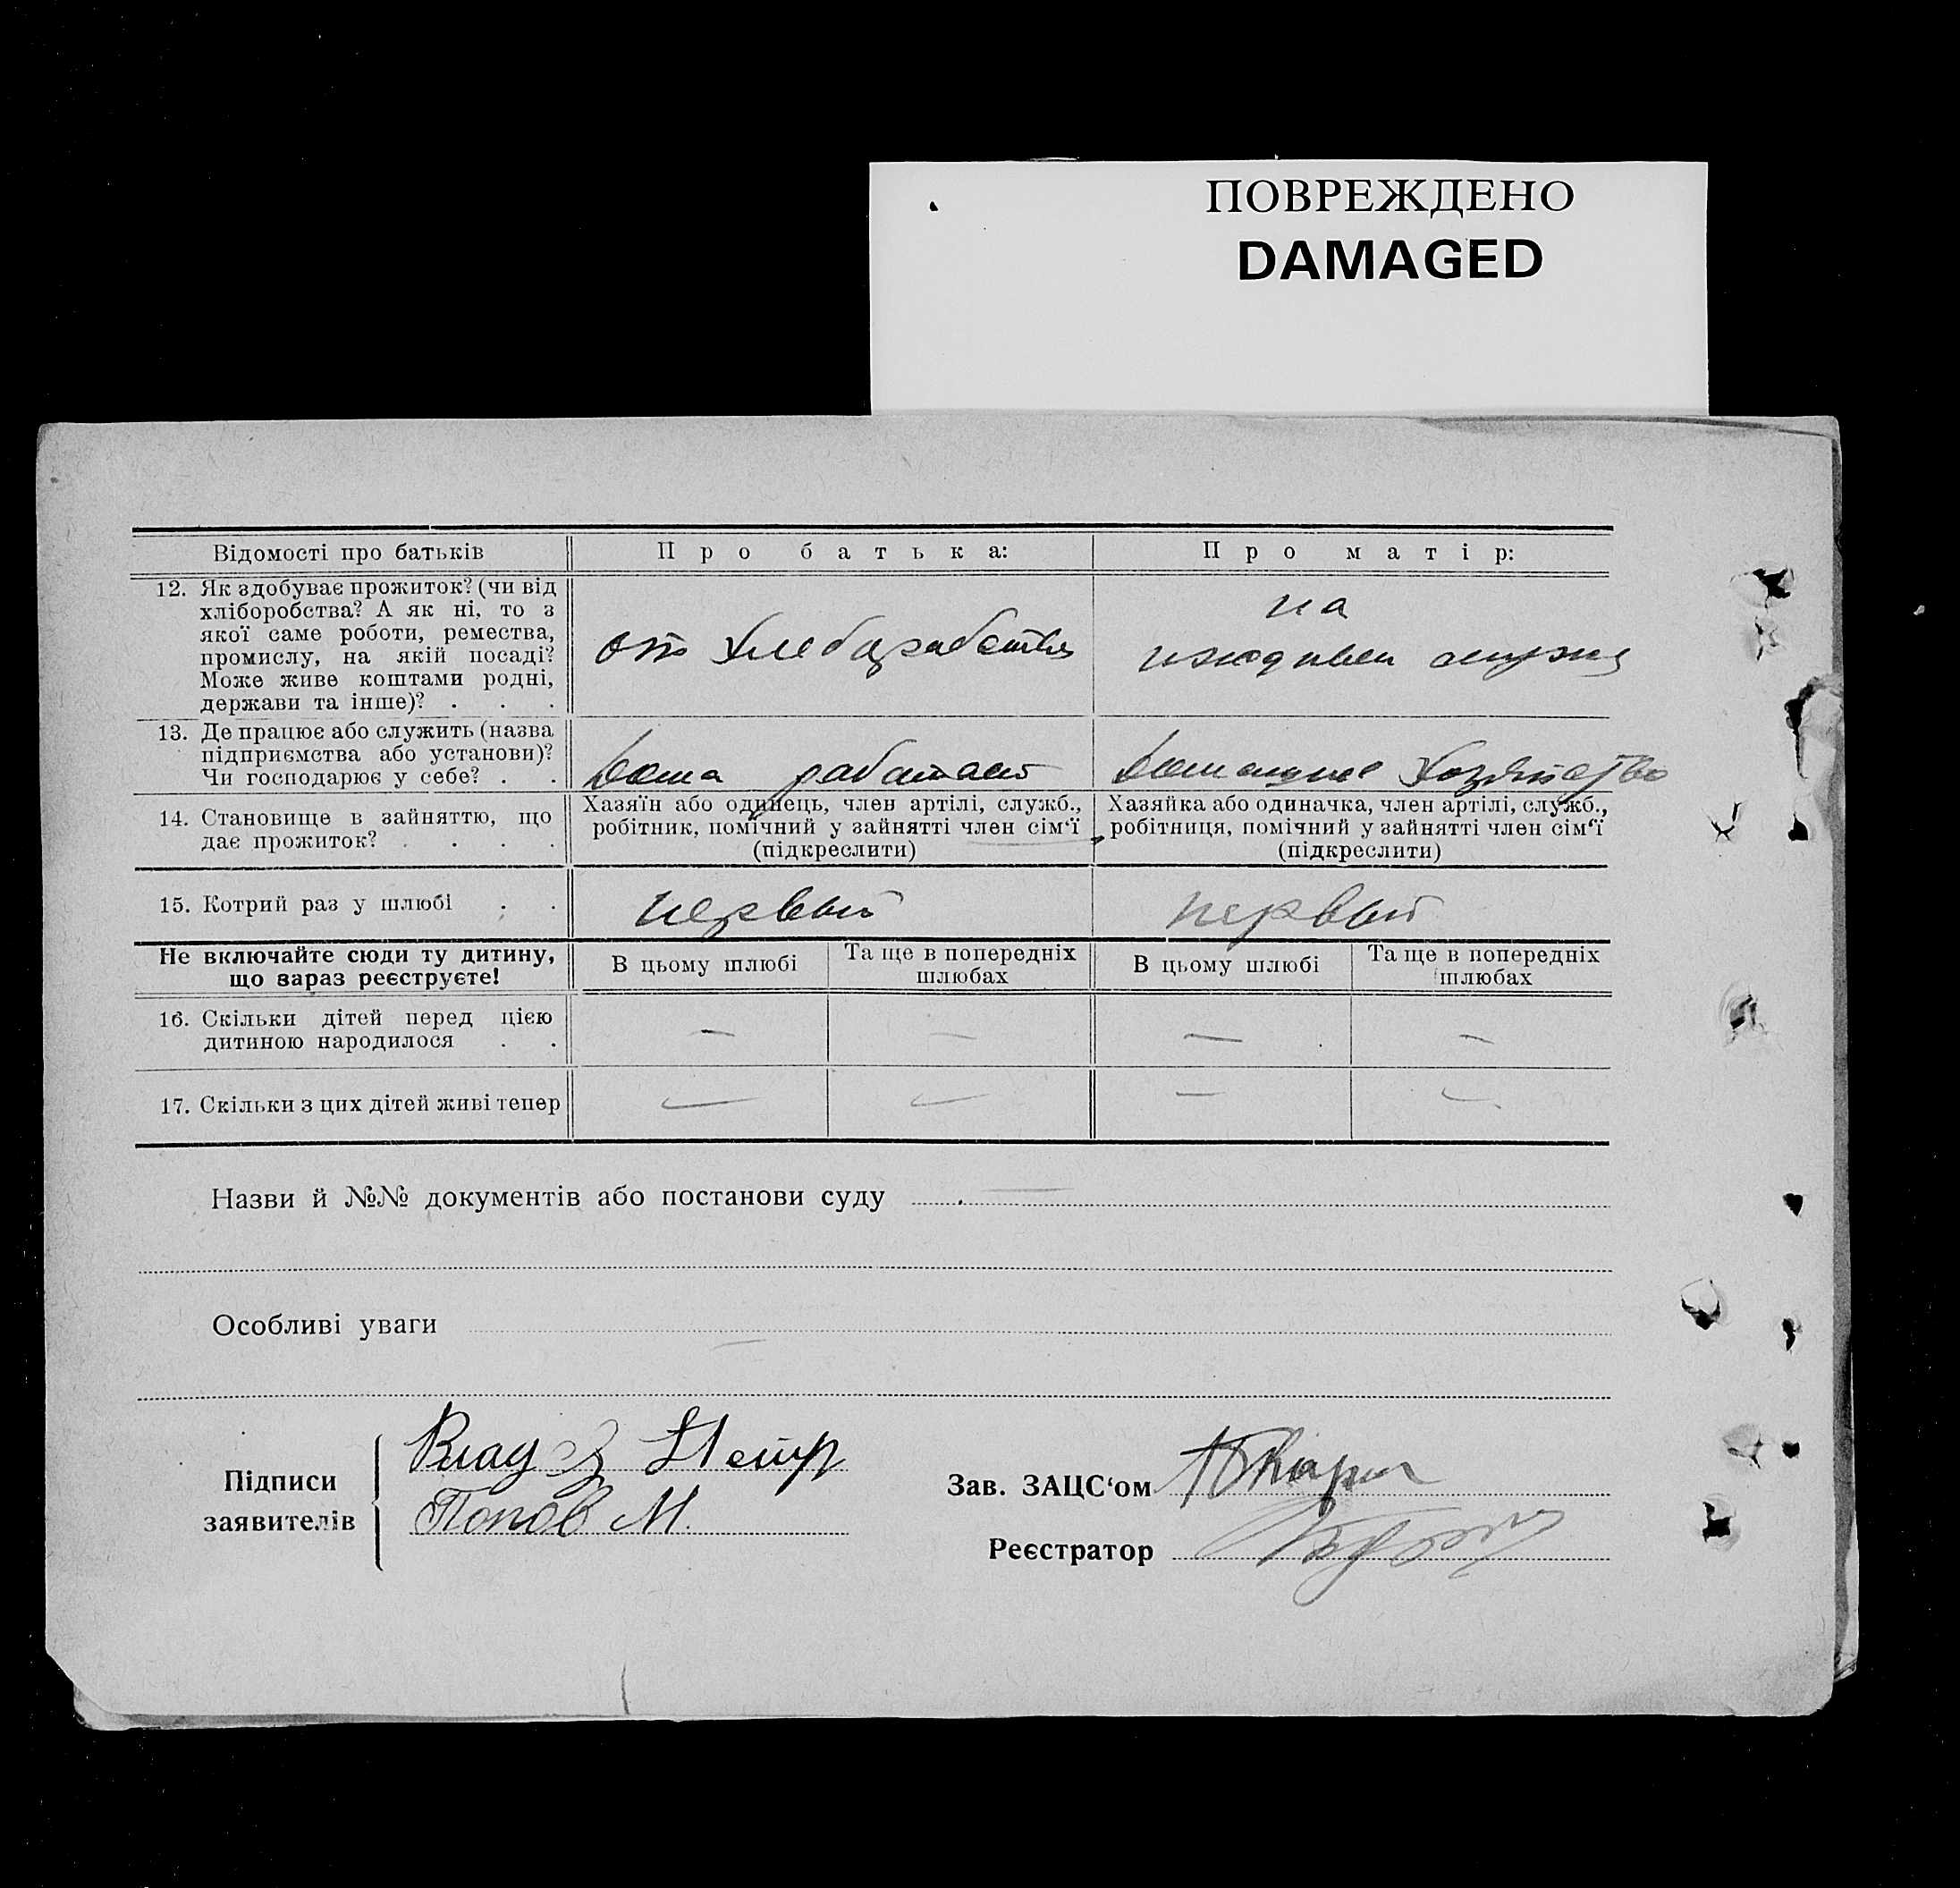 ПОВРЕЖДЕНО
DAMAGED
Відомості про батьків
Про батька:
Про матір:
12. Як здобуває прожиток? (чи від
хліборобства? А як ні, то з
якої саме роботи, ремества,
промислу, на якій посаді?
Може живе коштами родні,
держави та інше)? . . .
от хлебарабства
на
иждивен мужа
13. Де працює або служить (назва
підприємства або установи)?
Чи господарює у себе? . .
дома работает
домашнее хозяйство
14. Становище в зайняттю, що
дає прожиток? . . . .
Хазяїн або одинець, член артілі, служб.,
робітник, помічний у зайнятті член сім'ї
(підкреслити)
Хазяйка або одиначка, член артілі, служб.,
робітниця, помічний у зайнятті член сім'ї
(підкреслити)
15. Котрий раз у шлюбі . .
первый
первый
Не включайте сюди ту дитину,
що зараз реєструєте!
В цьому шлюбі
Та ще в попередніх
шлюбах
В цьому шлюбі
Та ще в попередніх
шлюбах
16. Скільки дітей перед цією
дитиною народилося . .
— — — —
17. Скільки з цих дітей живі тепер
— — — —
Назви й №№ документів або постанови суду —
Особливі уваги —
Підписи
заявителів
Влад
Попов М.
Зав. ЗАЦС'ом
Реєстратор